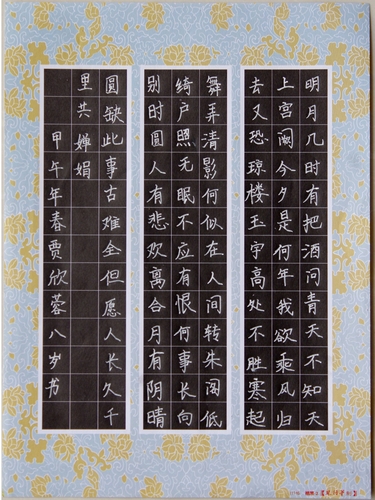 明月几时有把酒问青天不知天
上宫阙今夕是何年我欲乘风归
去又恐琼楼玉宇高处不胜寒起
舞弄清影何似在人间转朱阁低
绮户照无眠不应有恨何事长向
别时圆人有悲欢离合月有阴晴
圆缺此事古难全但愿人长久千
里共婵娟
甲午年春贾欣蓉八岁书